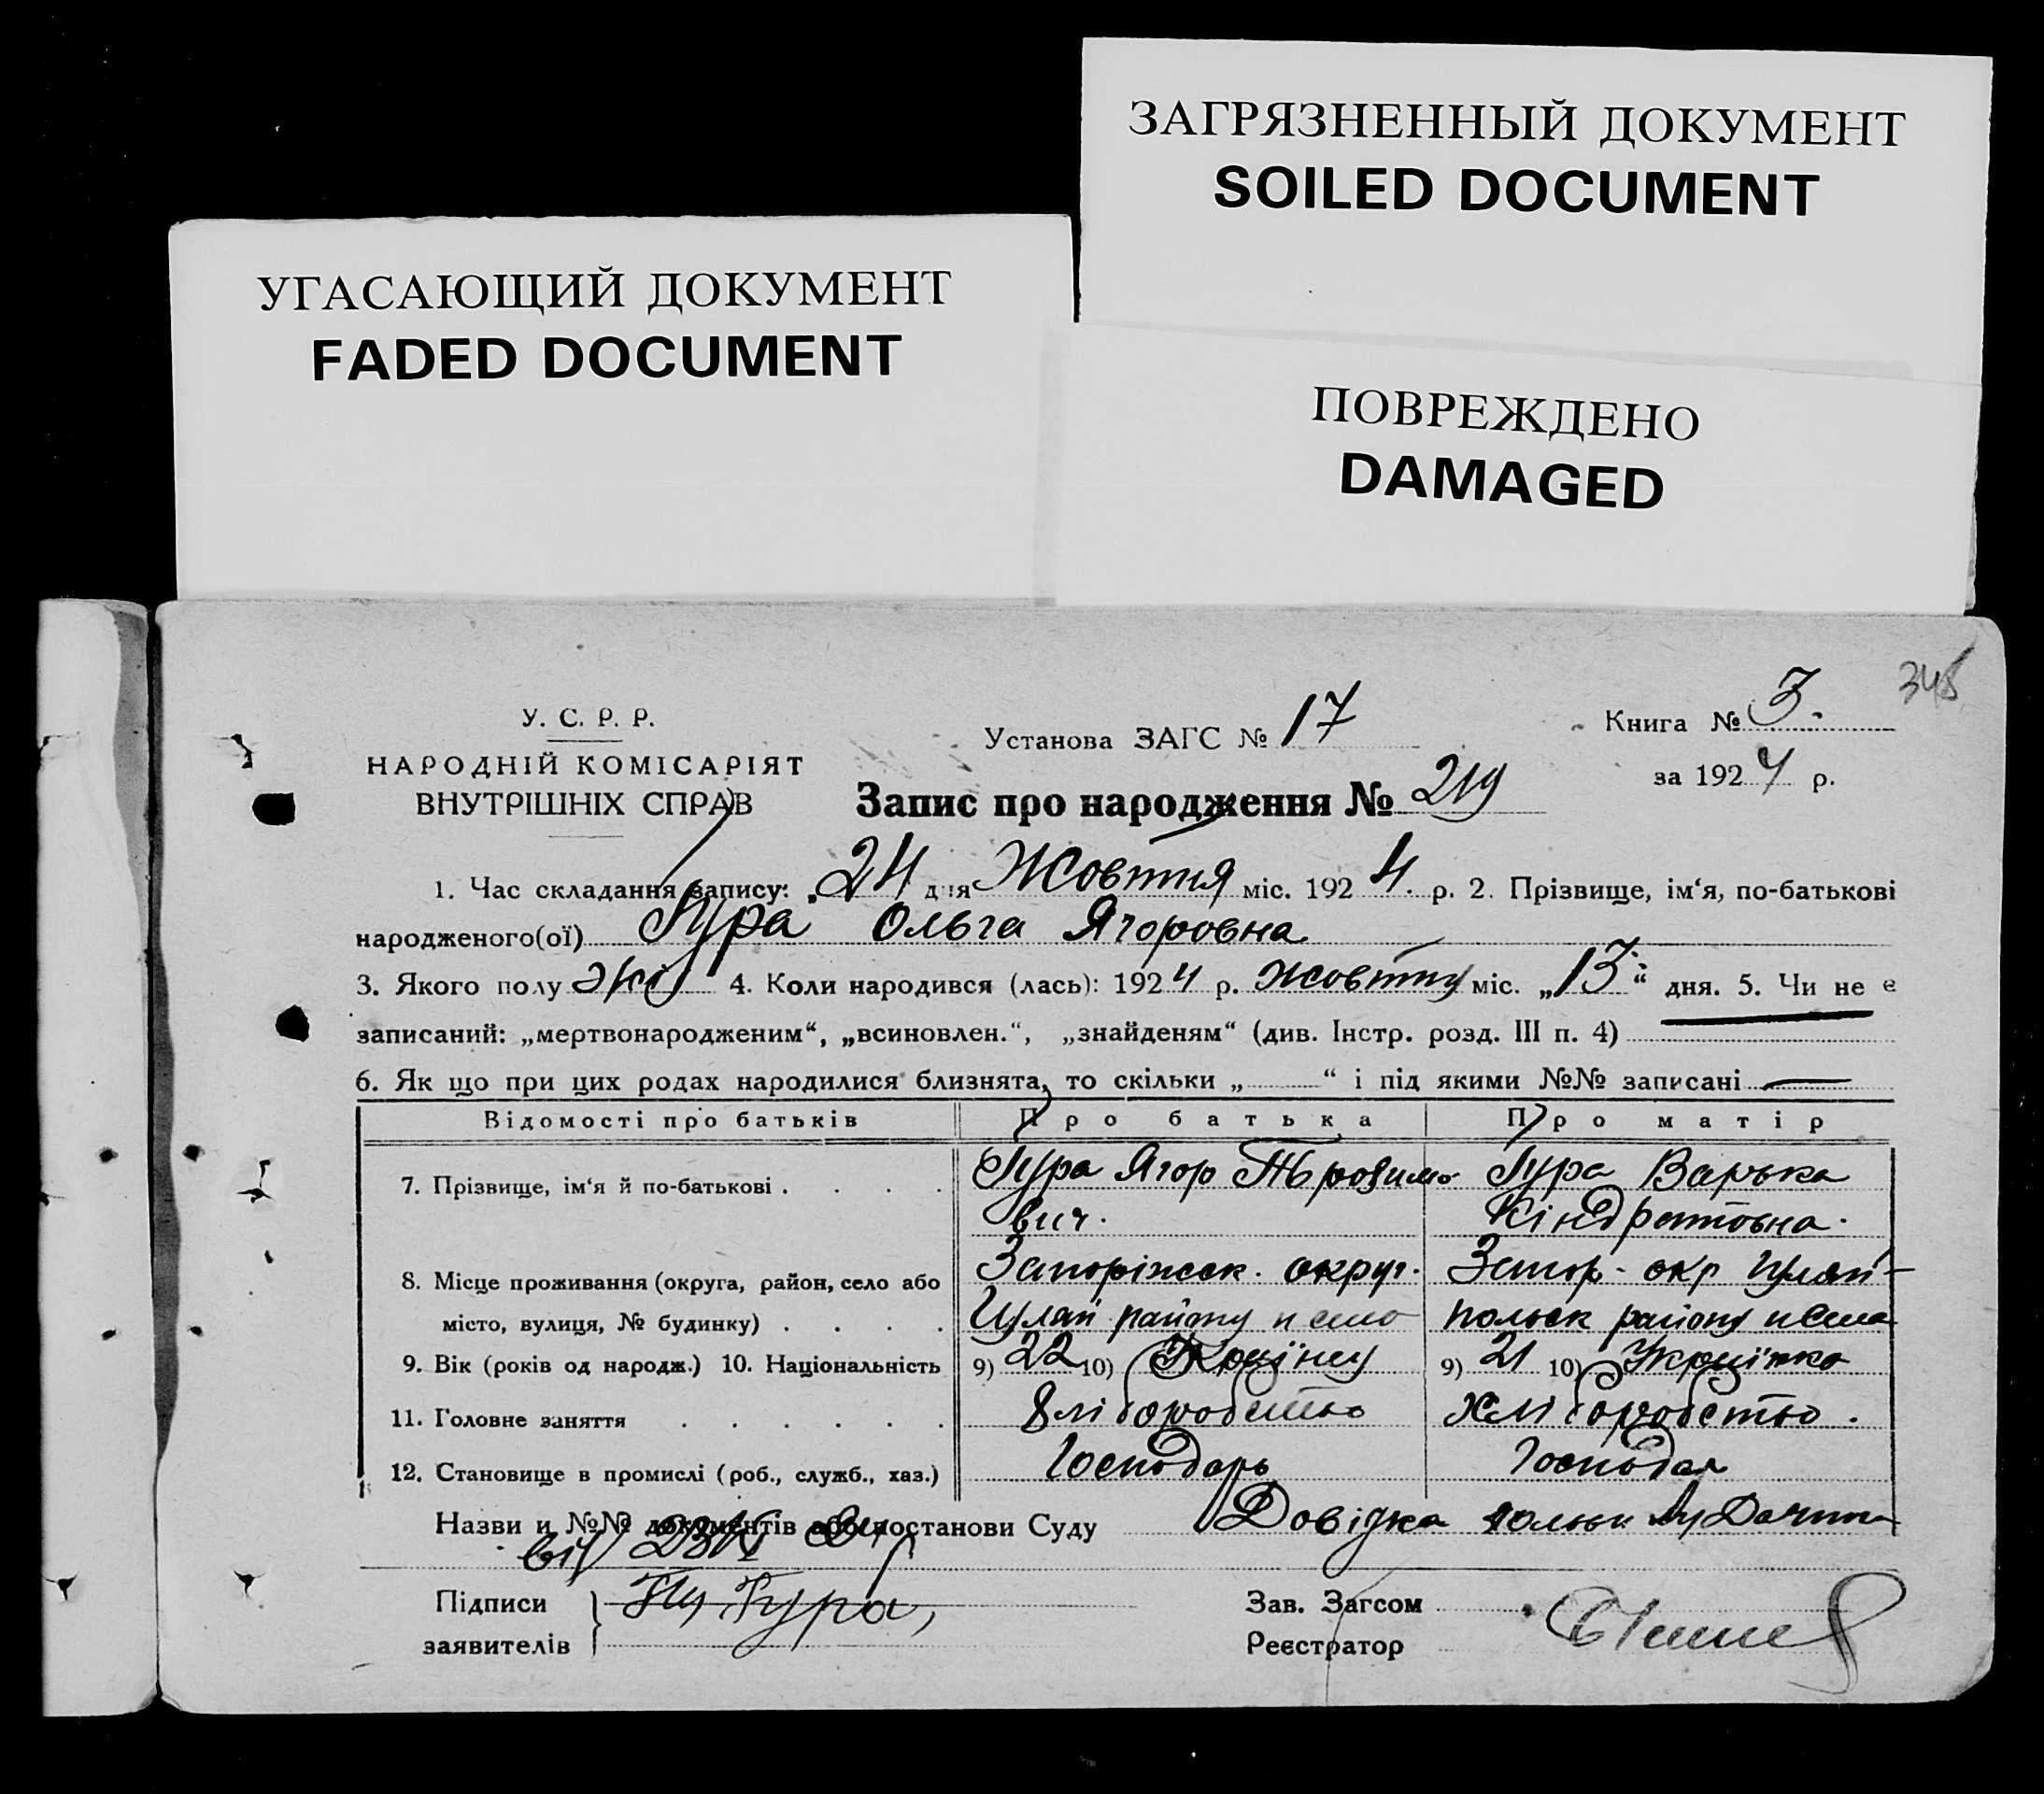 ЗАГРЯЗНЕННЫЙ ДОКУМЕНТ
SOILED DOCUMENT
УГАСАЮЩИЙ ДОКУМЕНТ
FADED DOCUMENT
ПОВРЕЖДЕНО
DAMAGED
345
У. С. Р. Р.
НАРОДНІЙ КОМІСАРІЯТ
ВНУТРІШНІХ СПРАВ
Установа ЗАГС № 17
Книга № 3.
за 1924 р.
Запис про народження № 219
1. Час складання запису: „24 дня Жовтня міс. 1924. р. 2. Прізвище, ім‘я, по-батькові
народженого(ої) Гура Ольга Ягоровна
3. Якого полу жі 4. Коли народився (лась): 1924 р. жовтня міс. „13“ дня. 5. Чи не є
записаний: „мертвонародженим“, „всиновлен.“, „знайденям“ (див. Інстр. розд. III п. 4)
6. Як що при цих родах народилися близнята, то скільки „ “ і під якими №№ записані —
Відомості про батьків Про батька Про матір
7. Прізвище, ім‘я й по-батькові . . . . Гура Ягор Гура Варька
вич. Кіндратовна.
8. Місце проживання (округа, район, село або Запоріжск. округ. Запор. окр Гуляй-
місто, вулиця, № будинку) . . . . Гуляй району польск району
9. Вік (років од народж.) 10. Національність 9) 22 10) Українец 9) 21 10) Українка
11. Головне заняття . . . . . . Хліборобство Хліборобство.
12. Становище в промислі (роб., служб., хаз.) Господарь Господар
Назви и №№ документів або постанови Суду Довідка
від
Підписи
заявителів } Гура
Зав. Загсом
Реєстратор